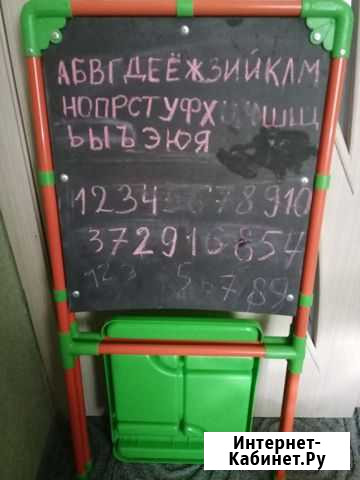 АБВГДЕЁЖЗИЙКЛМ
НОПРСТУФХ ШЩ
ЬЫЪЭЮЯ
12345678910
3729106854
123 5 6 7 89
Интернет-
Кабинет.Ру